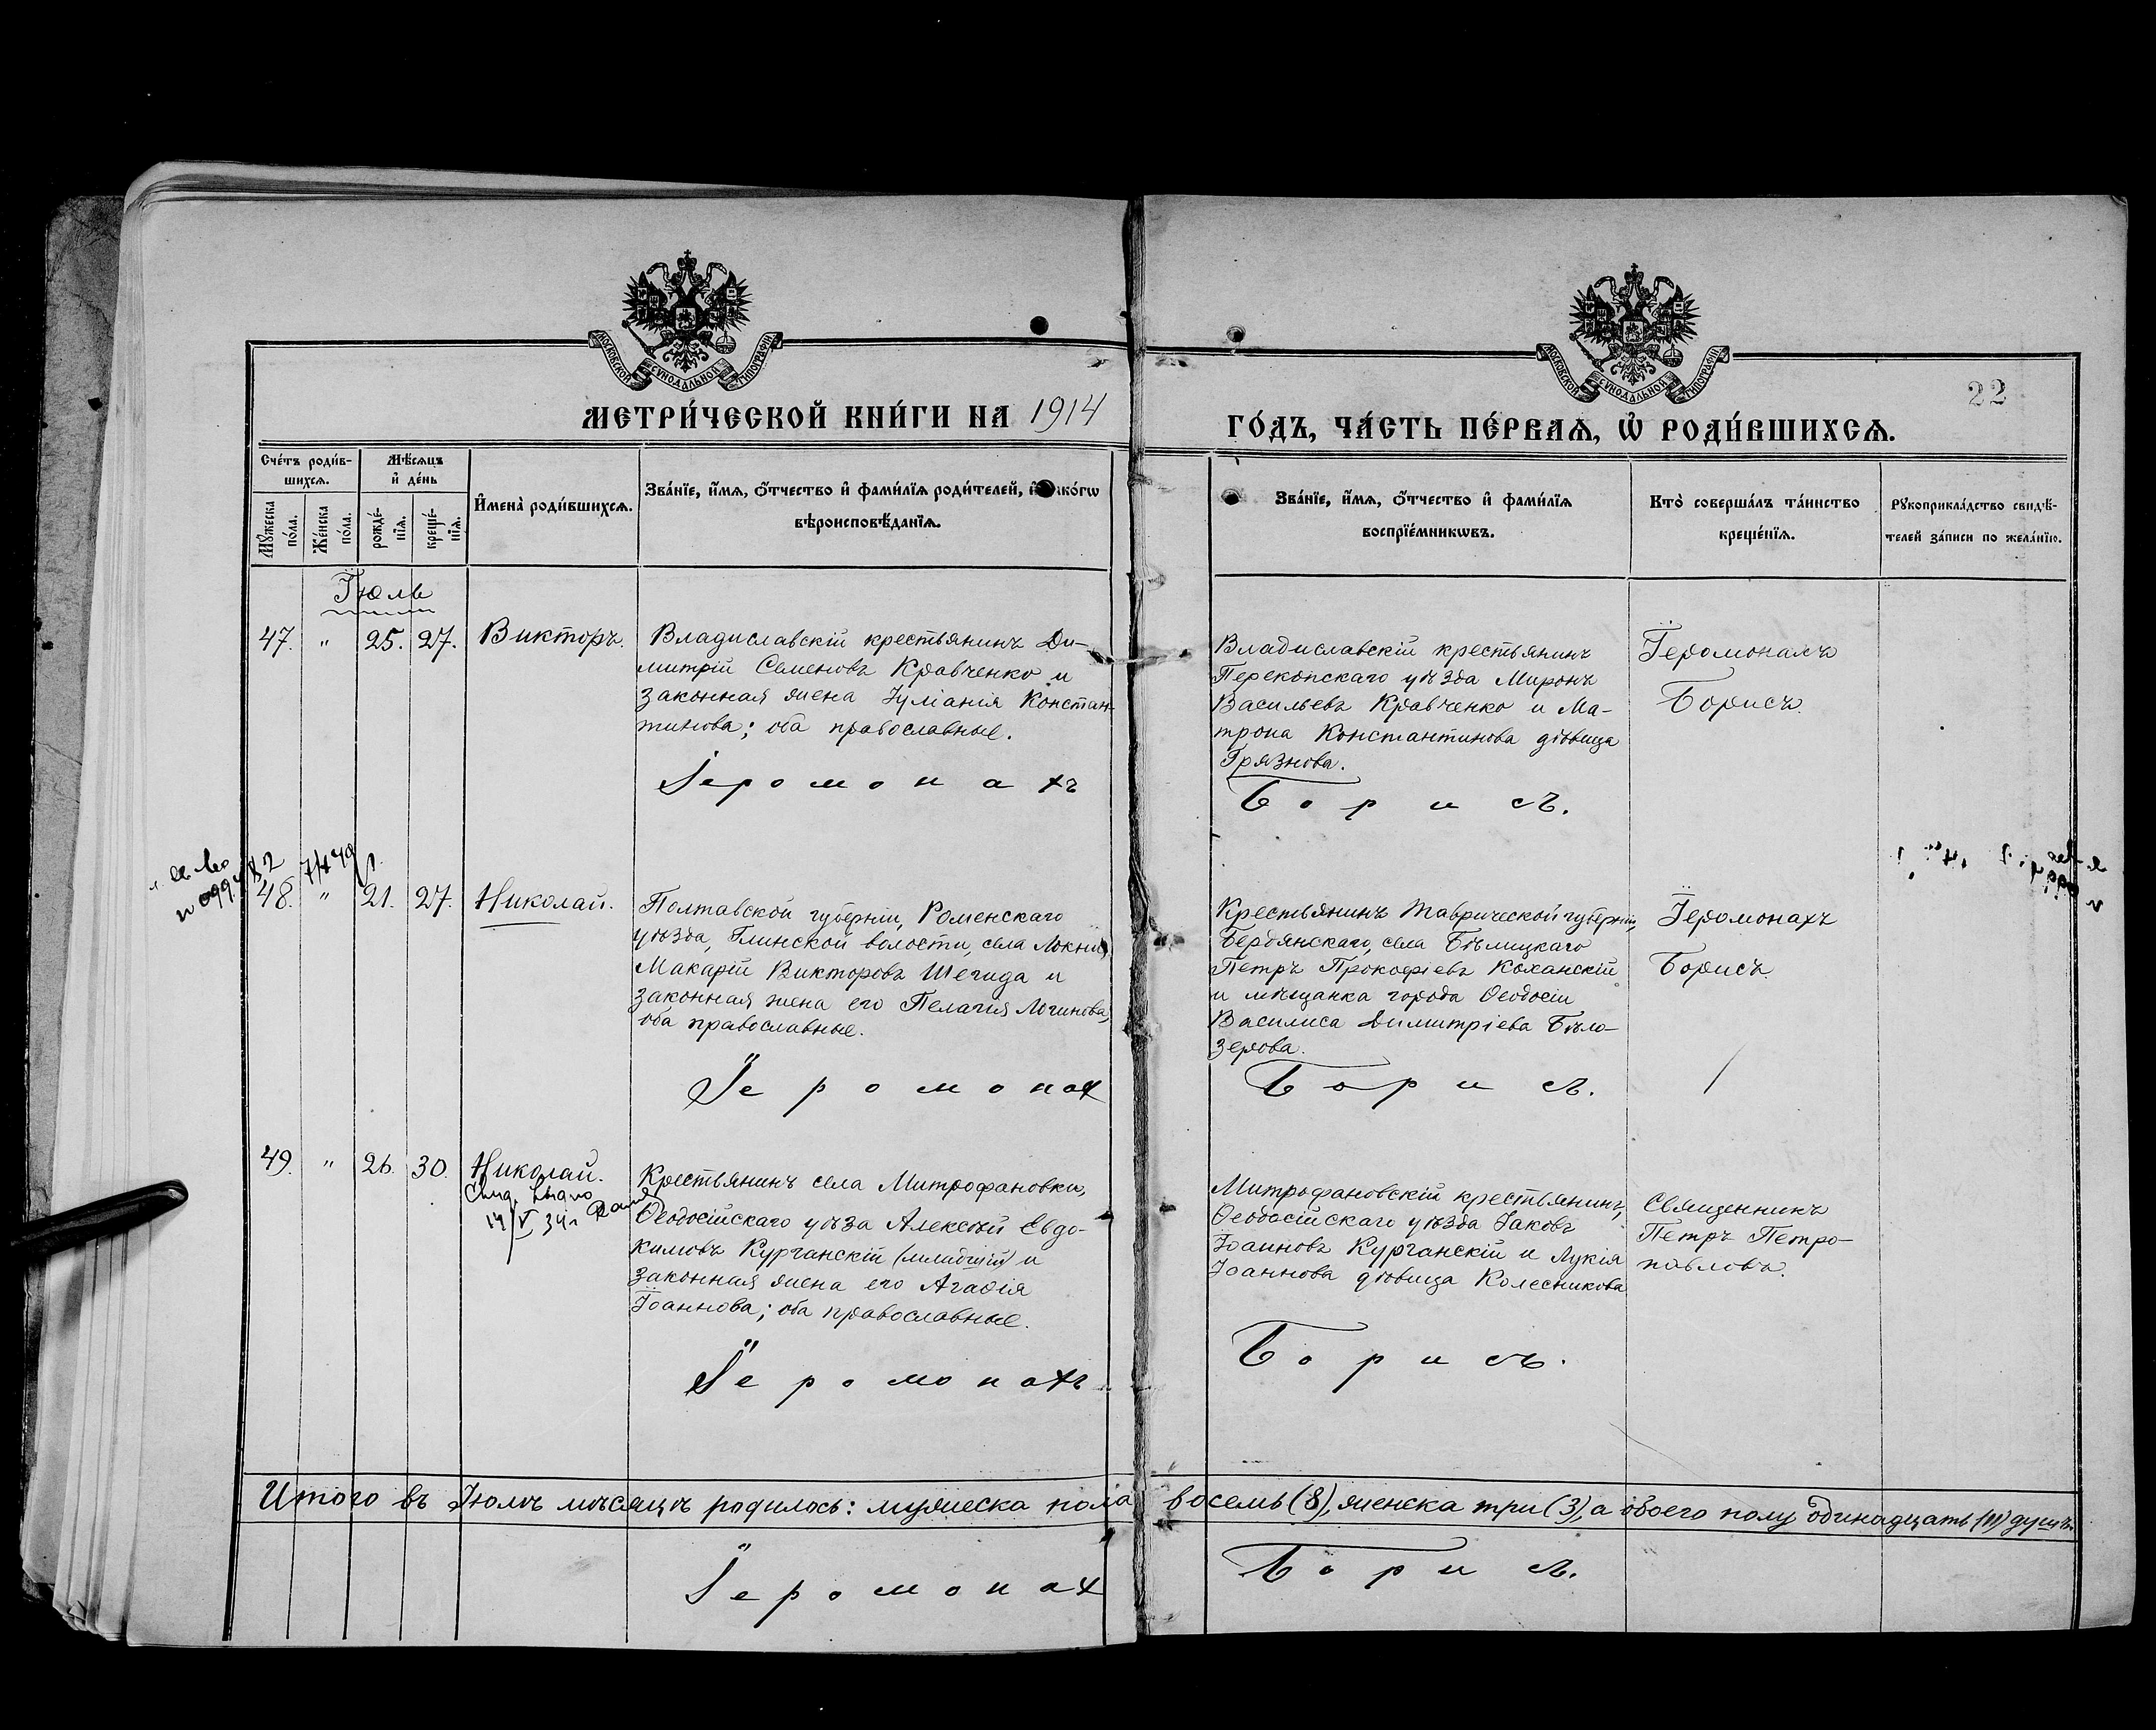 МОСКОВСКОЙ СУНОДАЛЬНОЙ ТИПОГРАФІИ
МОСКОВСКОЙ СУНОДАЛЬНОЙ ТИПОГРАФІИ
22
МЕТРИ́ЧЕСКОЙ КНИ́ГИ НА 1914
ГО́ДЪ, ЧА́СТЬ ПЕ́РВАѦ, Ѡ РОДИ́ВШИХСѦ.
Сче́тъ роди́в-
шихсѧ.
Мѣ́сѧцъ
и҆ де́нь
Мꙋ́жеска по́ла.
Же́нска по́ла.
рожде́-нїѧ.
креще́-нїѧ.
И҆мена̀ роди́вшихсѧ.
Зва́нїе, и҆́мѧ, ѻ҆́тчество и҆ фами́лїѧ роди́телей, и҆ ко́гѡ
вѣроисповѣ́данїѧ.
Зва́нїе, и҆́мѧ, ѻ҆́тчество и҆ фами́лїѧ
воспрїе́мникѡвъ.
Кто̀ соверша́лъ та́инство
креще́нїѧ.
Рꙋкоприкла́дство свидѣ́-
телей за́писи по жела́нїю.
Іюль
47. " 25. 27. Викторъ.
Владиславскій крестьянинъ Ди-
митрій Семеновъ Кравченко и
законная жена Іуліанія Констан-
тинова; оба православные.
Іеромонахъ
Владиславскій крестьянинъ
Перекопскаго уѣзда Миронъ
Васильевъ Кравченко и Ма-
трона Константинова дѣвица
Грязнова.
Борисъ.
Іеромонахъ
Борисъ.
48. " 21. 27. Николай.
Полтавской губерніи, Роменскаго
уѣзда, Глинской волости, села Локни
Макарій Викторовъ Шегида и
законная жена его Пелагія Логинова,
оба православные.
Іеромонах
Крестьянинъ Таврической губерніи,
Бердянскаго, села Бѣлицкаго
Петръ Прокофіевъ Коханскій
и мѣщанка города Ѳеодосіи
Василиса Димитріева Бѣло-
зерова.
Борисъ.
Іеромонахъ
Борисъ.
49. " 26. 30. Николай.
Крестьянинъ села Митрофановки,
Ѳеодосійскаго уѣзда Алексѣй Евдо-
кимовъ Курганскій (младшій) и
законная жена его Агафія
Іоаннова; оба православные.
Іеромонахъ
Митрофановскій крестьянинъ,
Ѳеодосійскаго уѣзда Іаковъ
Іоанновъ Курганскій и Лукія
Іоаннова дѣвица Колесникова
Борисъ.
Священникъ
Петръ Петро-
павловъ.
Итого въ Іюлѣ мѣсяцѣ родилось: мужеска пола восемь (8), женска три (3), а обоего полу одинадцать (11) душъ.
Іеромонах
Борисъ.